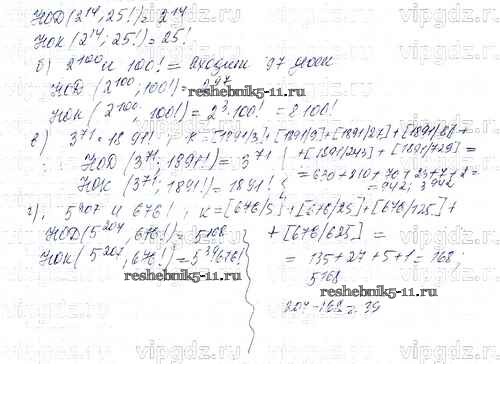 НОД(2^14, 25!) = 2^14
НОК(2^14; 25!) = 25!
б) 2^100 и 100! = входит 97 двоек
НОД (2^100, 100!) = 2^97
reshebnik5-11.ru
НОК (2^100; 100!) = 2^3·100! = 8·100!
в) 3^71 и 1891!; к = [1891/3] + [1891/9] + [1891/27] + [1891/81] +
НОД (3^71; 1891!) = 3^71 + [1891/243] + [1891/729] =
НОК (3^71; 1891!) = 1891! = 630 + 210 + 70 + 23 + 7 + 2 =
= 942; 3^942
г) 5^207 и 676!; к = [676/5] + [676/25] + [676/125] +
НОД(5^207, 676!) = 5^168 + [676/625] =
НОК(5^207, 676!) = 5^39·676! = 135 + 27 + 5 + 1 = 168;
reshebnik5-11.ru
5^168
reshebnik5-11.ru
207 - 168 = 39
vipgdz.ru